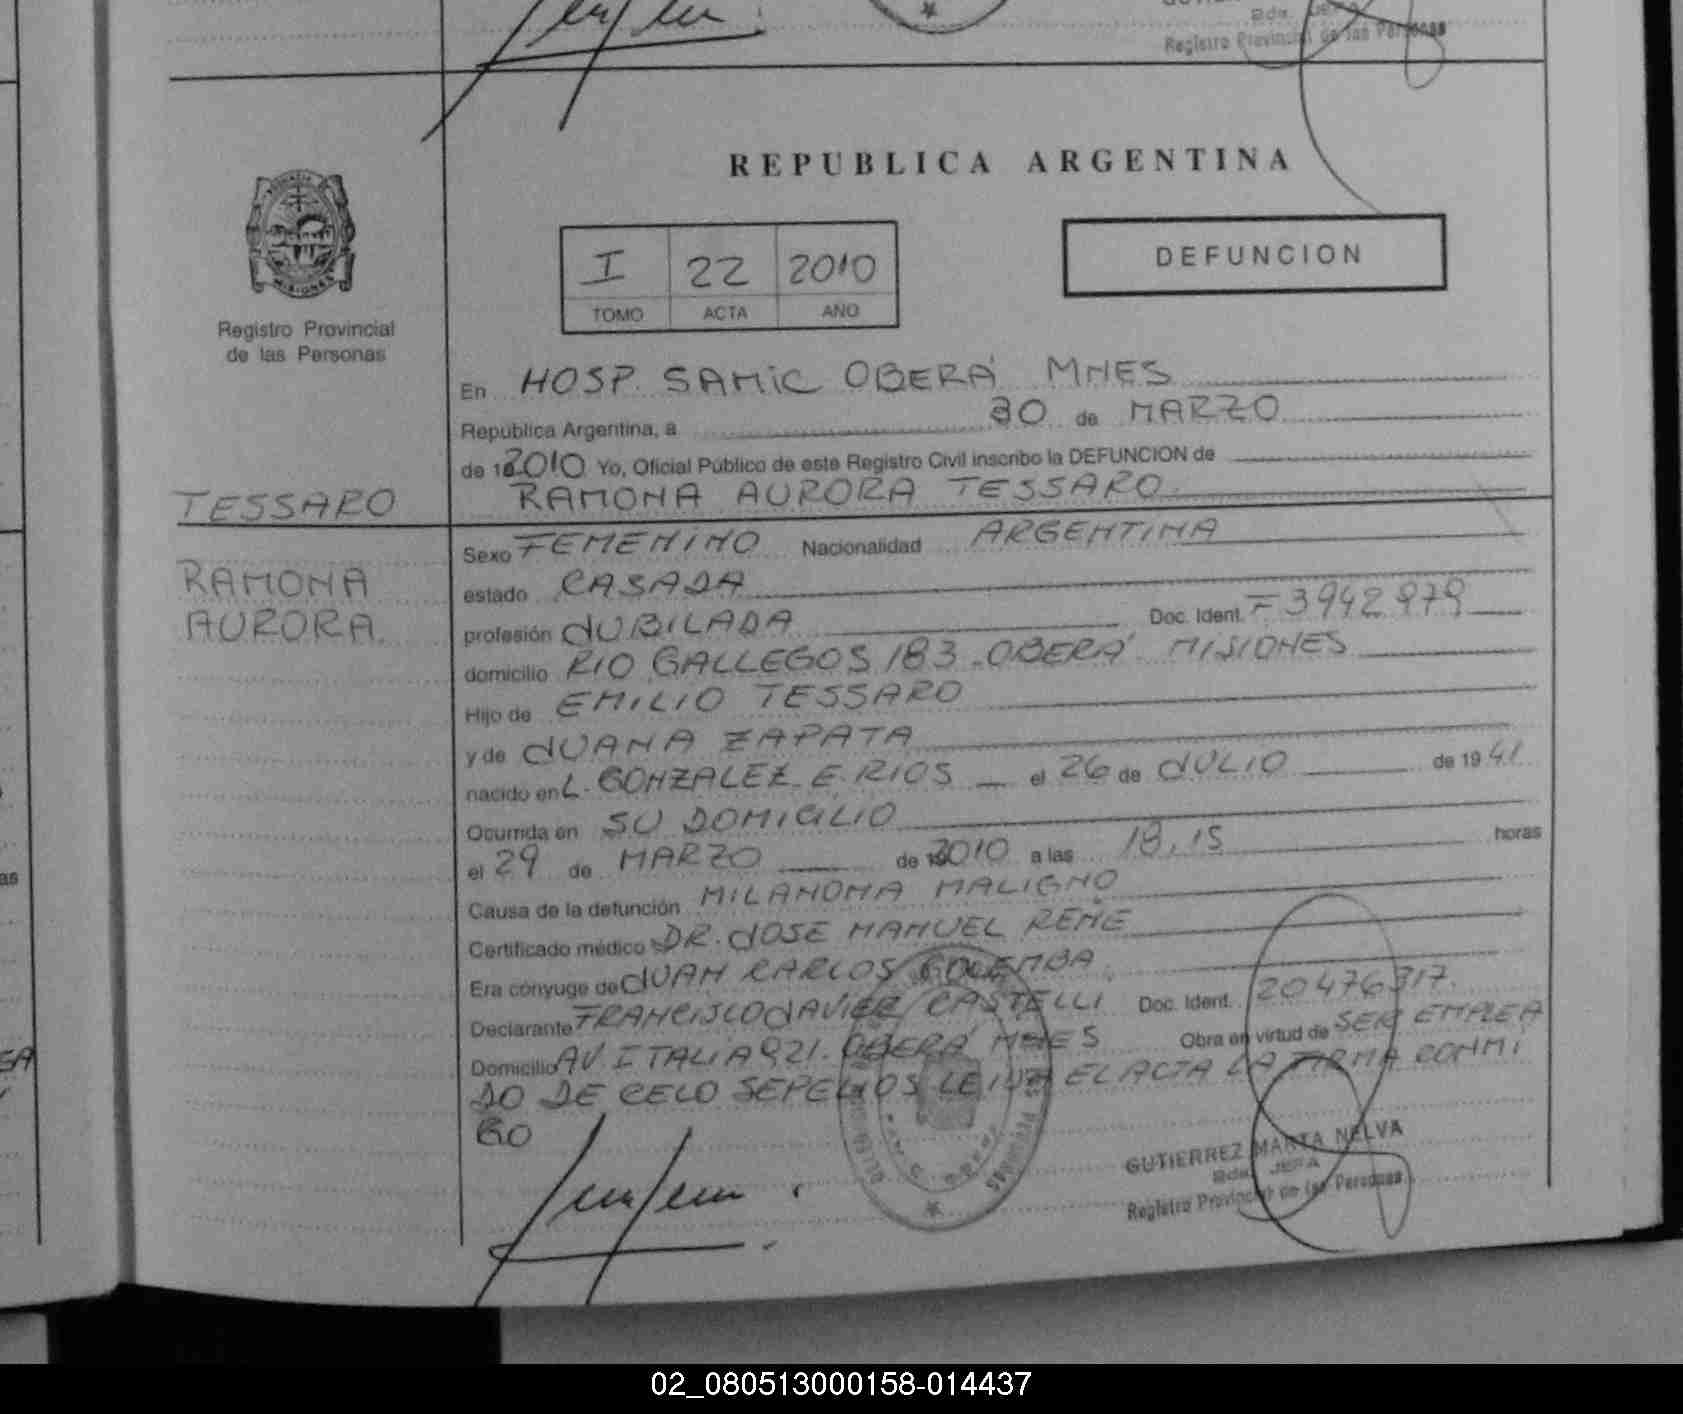 Registro Provincial de las Personas
REPUBLICA ARGENTINA
I 22 2010
TOMO ACTA AÑO
DEFUNCION
MISIONES
Registro Provincial
de las Personas
En HOSP. SAMIC OBERÁ MNES
República Argentina, a 30 de MARZO
de 19 2010 Yo, Oficial Público de este Registro Civil inscribo la DEFUNCION de
RAMONA AURORA TESSARO
TESSARO
RAMONA
AURORA
Sexo FEMENINO Nacionalidad ARGENTINA
estado CASADA
profesión JUBILADA Doc. Ident. F3942979
domicilio RIO GALLEGOS 183 - OBERÁ MISIONES
Hijo de EMILIO TESSARO
y de JUANA ZAPATA
nacido en L. GONZALEZ E. RIOS el 26 de JULIO de 1941
Ocurrida en SU DOMICILIO
el 29 de MARZO de 2010 a las 18,15 horas
Causa de la defunción MILANOMA MALIGNO
Certificado médico DR. JOSE MANUEL RENE
Era cónyuge de JUAN CARLOS GOLEMBA
Declarante FRANCISCO JAVIER CASTELLI Doc. Ident. 20476317
Domicilio AV. ITALIA 921. OBERÁ MNES Obra en virtud de SER EMPLEA
DO DE CELO SEPELIOS LEIDA EL ACTA LA FIRMA CONMI
GO
GUTIERREZ MARTA NELVA
Bda. JEFA
Registro Provincial de las Personas
02_080513000158-014437